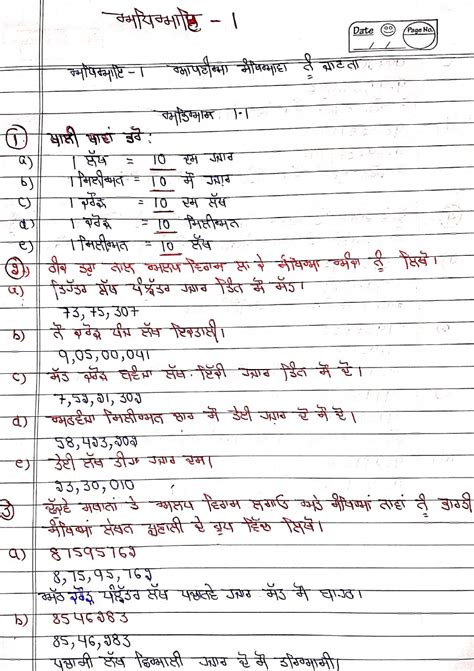 ਅਧਿਆਇ - 1
Date Page No.
ਅਧਿਆਇ - 1 ਆਪਣੀਆਂ ਸੰਖਿਆਵਾਂ ਨੂੰ ਜਾਣਨਾ
ਅਭਿਆਸ 1.1
1. ਖਾਲੀ ਥਾਵਾਂ ਭਰੋ:
a) 1 ਲੱਖ = 10 ਦਸ ਹਜ਼ਾਰ
b) 1 ਮਿਲੀਅਨ = 10 ਸੌ ਹਜ਼ਾਰ
c) 1 ਕਰੋੜ = 10 ਦਸ ਲੱਖ
d) 1 ਕਰੋੜ = 10 ਮਿਲੀਅਨ
e) 1 ਮਿਲੀਅਨ = 10 ਲੱਖ
2. ਠੀਕ ਤਰ੍ਹਾਂ ਨਾਲ ਅਲਪ ਵਿਰਾਮ ਲਾ ਕੇ ਸੰਖਿਆ ਅੰਕ ਨੂੰ ਲਿਖੋ।
a) ਤਿਹੱਤਰ ਲੱਖ ਪੰਝੱਤਰ ਹਜ਼ਾਰ ਤਿੰਨ ਸੌ ਸੱਤ।
73,75,307
b) ਨੌਂ ਕਰੋੜ ਪੰਜ ਲੱਖ ਇਕਤਾਲੀ।
9,05,00,041
c) ਸੱਤ ਕਰੋੜ ਬਵੰਜਾ ਲੱਖ ਇੱਕੀ ਹਜ਼ਾਰ ਤਿੰਨ ਸੌ ਦੋ।
7,52,21,302
d) ਅਠਵੰਜਾ ਮਿਲੀਅਨ ਚਾਰ ਸੌ ਤੇਈ ਹਜ਼ਾਰ ਦੋ ਸੌ ਦੋ।
58,423,202
e) ਤੇਈ ਲੱਖ ਤੀਹ ਹਜ਼ਾਰ ਦਸ।
23,30,010
3) ਅਲਪ ਵਿਰਾਮ ਲਗਾਓ ਅਤੇ ਸੰਖਿਆ ਨਾਵਾਂ ਨੂੰ ਭਾਰਤੀ
ਸੰਖਿਆ ਸੰਕੇਤ ਪ੍ਰਣਾਲੀ ਦੇ ਰੂਪ ਵਿੱਚ ਲਿਖੋ।
a) 87595762
8,75,95,762
ਅੱਠ ਕਰੋੜ ਪੰਝੱਤਰ ਲੱਖ ਪਚਾਨਵੇ ਹਜ਼ਾਰ ਸੱਤ ਸੌ ਬਾਹਠ।
b) 8546283
85,46,283
ਪਚਾਸੀ ਲੱਖ ਛਿਆਲੀ ਹਜ਼ਾਰ ਦੋ ਸੌ ਤਰਿਆਸੀ।